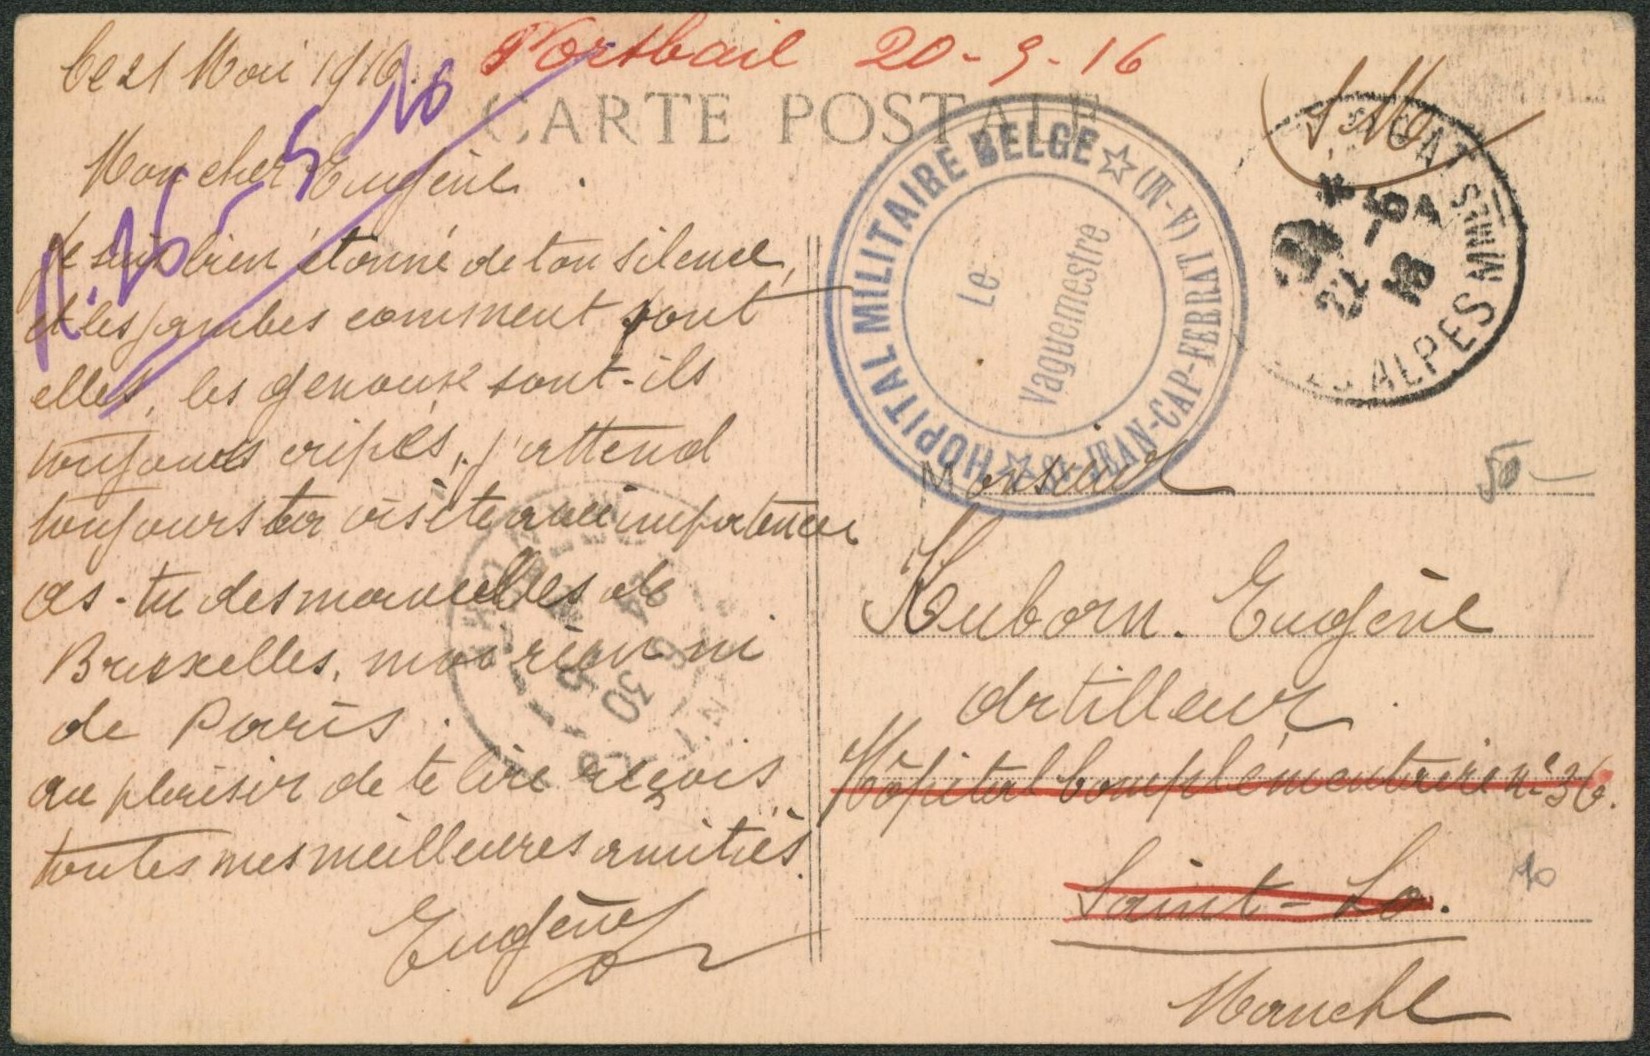 Ce 21 Mai 1916.
Portbail 20-5-16
CARTE POSTALE
S.M.
R. 26-5-16
Mon cher Eugène.
Je suis bien étonné de ton silence,
et les jambes comment sont
elles, les genoux sont-ils
toujours cripés, j'attend
toujours ta visite avec impatience
as-tu des nouvelles de
Bruxelles, moi rien ni
de Paris.
au plaisir de te lire reçois
toutes mes meilleures amitiés.
Eugène
HOPITAL MILITAIRE BELGE ☆ (M-V) St JEAN-CAP-FERRAT ☆
Le
Vaguemestre
22 -5 16
ALPES MMES
50-
Monsieur
Huborn. Eugène
Artilleur.
Hôpital Complémentaire n° 36.
Saint-Lo.
10
Manche
30